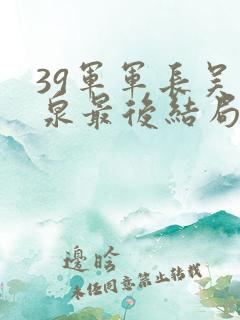 39軍軍長吴
泉最後結局
邊晗
未任同意禁止转载